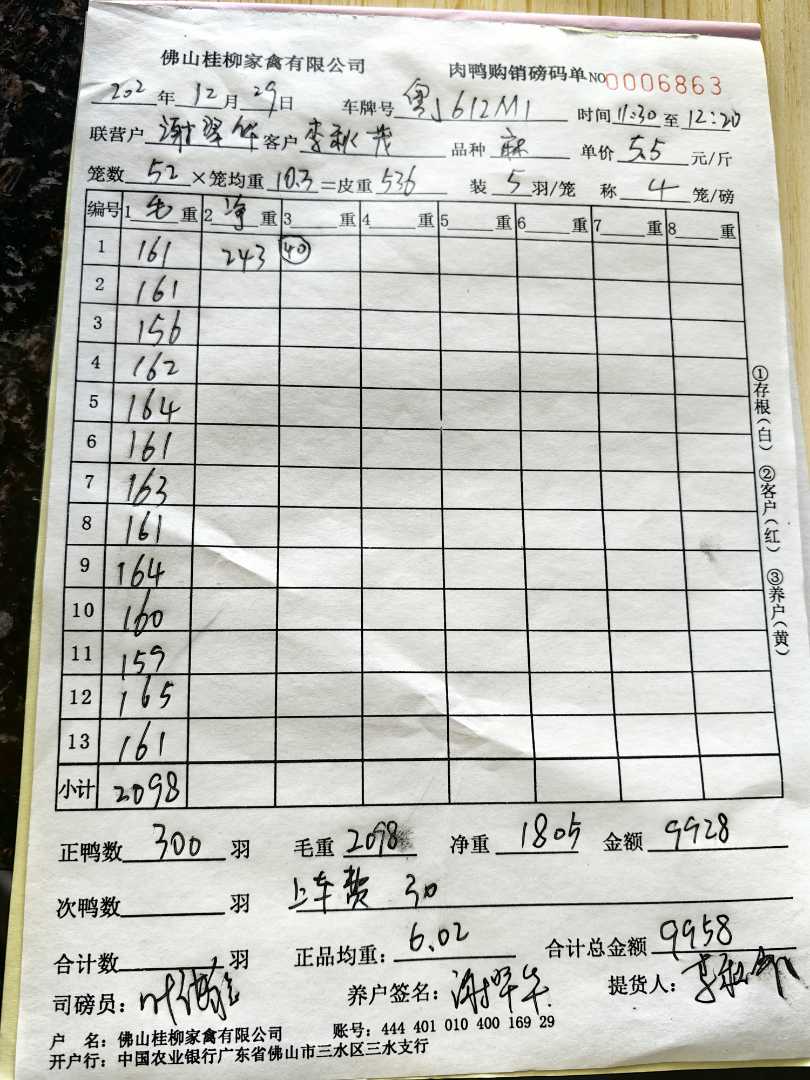 佛山桂柳家禽有限公司 肉鸭购销磅码单 NO 0006863
202 年 12 月 29 日 车牌号 粤J612M1 时间 11:30 至 12:20
联营户 谢翠华 客户 李秋茂 品种 麻 单价 5.5 元/斤
笼数 52 ×笼均重 10.3 =皮重 536 装 5 羽/笼 称 4 笼/磅
编号 1 毛 重 2 净 重 3 重 4 重 5 重 6 重 7 重 8 重
1 161 243 40
2 161
3 156
4 162
5 164
6 161
7 163
8 161
9 164
10 160
11 159
12 165
13 161
小计 2098
正鸭数 300 羽 毛重 2098 净重 1805 金额 9928
次鸭数 羽 上车费 30
合计数 羽 正品均重: 6.02 合计总金额 9958
司磅员: 叶 养户签名: 谢翠华 提货人: 李秋
户 名: 佛山桂柳家禽有限公司 账号: 444 401 010 400 169 29
开户行: 中国农业银行广东省佛山市三水区三水支行
①存根(白) ②客户(红) ③养户(黄)